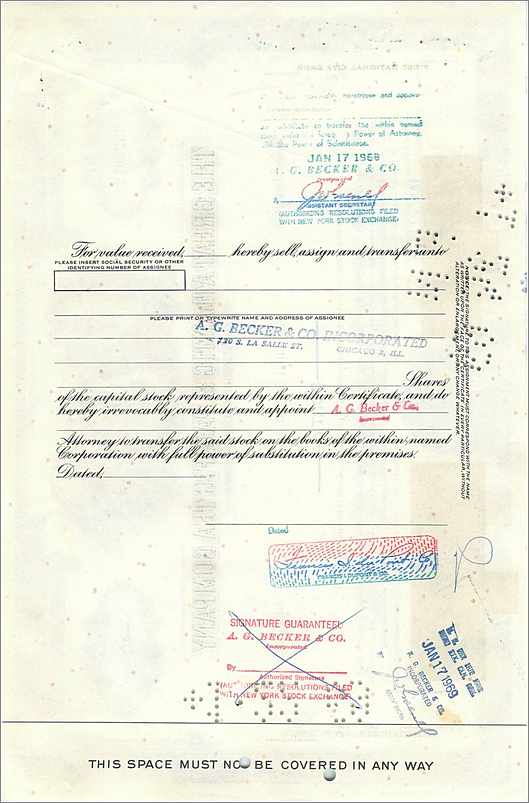 JAN 17 1968
A. G. BECKER & CO.
Incorporated
ASSISTANT SECRETARY
AUTHORIZING RESOLUTIONS FILED
WITH NEW YORK STOCK EXCHANGE
For value received, hereby sell, assign and transfer unto
PLEASE INSERT SOCIAL SECURITY OR OTHER
IDENTIFYING NUMBER OF ASSIGNEE
PLEASE PRINT OR TYPEWRITE NAME AND ADDRESS OF ASSIGNEE
A. G. BECKER & CO. INCORPORATED
120 S. LA SALLE ST. CHICAGO 3, ILL.
Shares
of the capital stock represented by the within Certificate, and do
hereby irrevocably constitute and appoint A. G. Becker & Co.
Incorporated
Attorney to transfer the said stock on the books of the within named
Corporation, with full power of substitution in the premises.
Dated,
NOTICE: THE SIGNATURE TO THIS ASSIGNMENT MUST CORRESPOND WITH THE NAME
AS WRITTEN UPON THE FACE OF THE CERTIFICATE IN EVERY PARTICULAR WITHOUT
ALTERATION OR ENLARGEMENT OR ANY CHANGE WHATEVER.
Dated
SIGNATURE GUARANTEED
A. G. BECKER & CO.
Incorporated
By
Authorized Signature
(AUTHORIZING RESOLUTIONS FILED
WITH NEW YORK STOCK EXCHANGE)
JAN 17 1968
A. G. BECKER & CO.
INCORPORATED
THIS SPACE MUST NOT BE COVERED IN ANY WAY